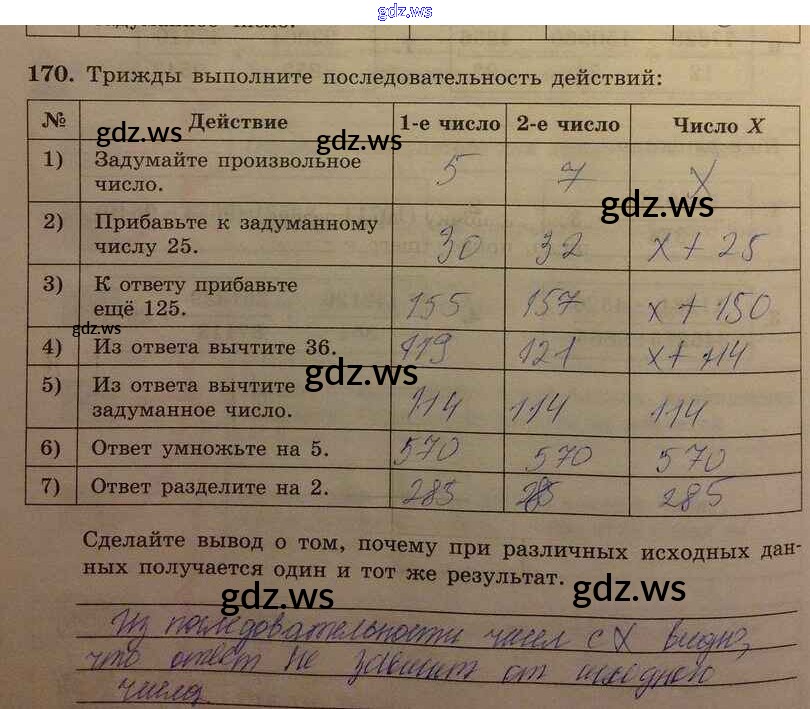 gdz.ws
170. Трижды выполните последовательность действий:
№ Действие 1-е число 2-е число Число X
1) Задумайте произвольное число. 5 7 X
2) Прибавьте к задуманному числу 25. 30 32 x + 25
3) К ответу прибавьте ещё 125. 155 157 x + 150
4) Из ответа вычтите 36. 119 121 x + 114
5) Из ответа вычтите задуманное число. 114 114 114
6) Ответ умножьте на 5. 570 570 570
7) Ответ разделите на 2. 285 285 285
Сделайте вывод о том, почему при различных исходных дан-
ных получается один и тот же результат.
Из последовательности чисел с X видно,
что ответ не зависит от исходного
числа
gdz.ws
gdz.ws
gdz.ws
gdz.ws
gdz.ws
gdz.ws
gdz.ws